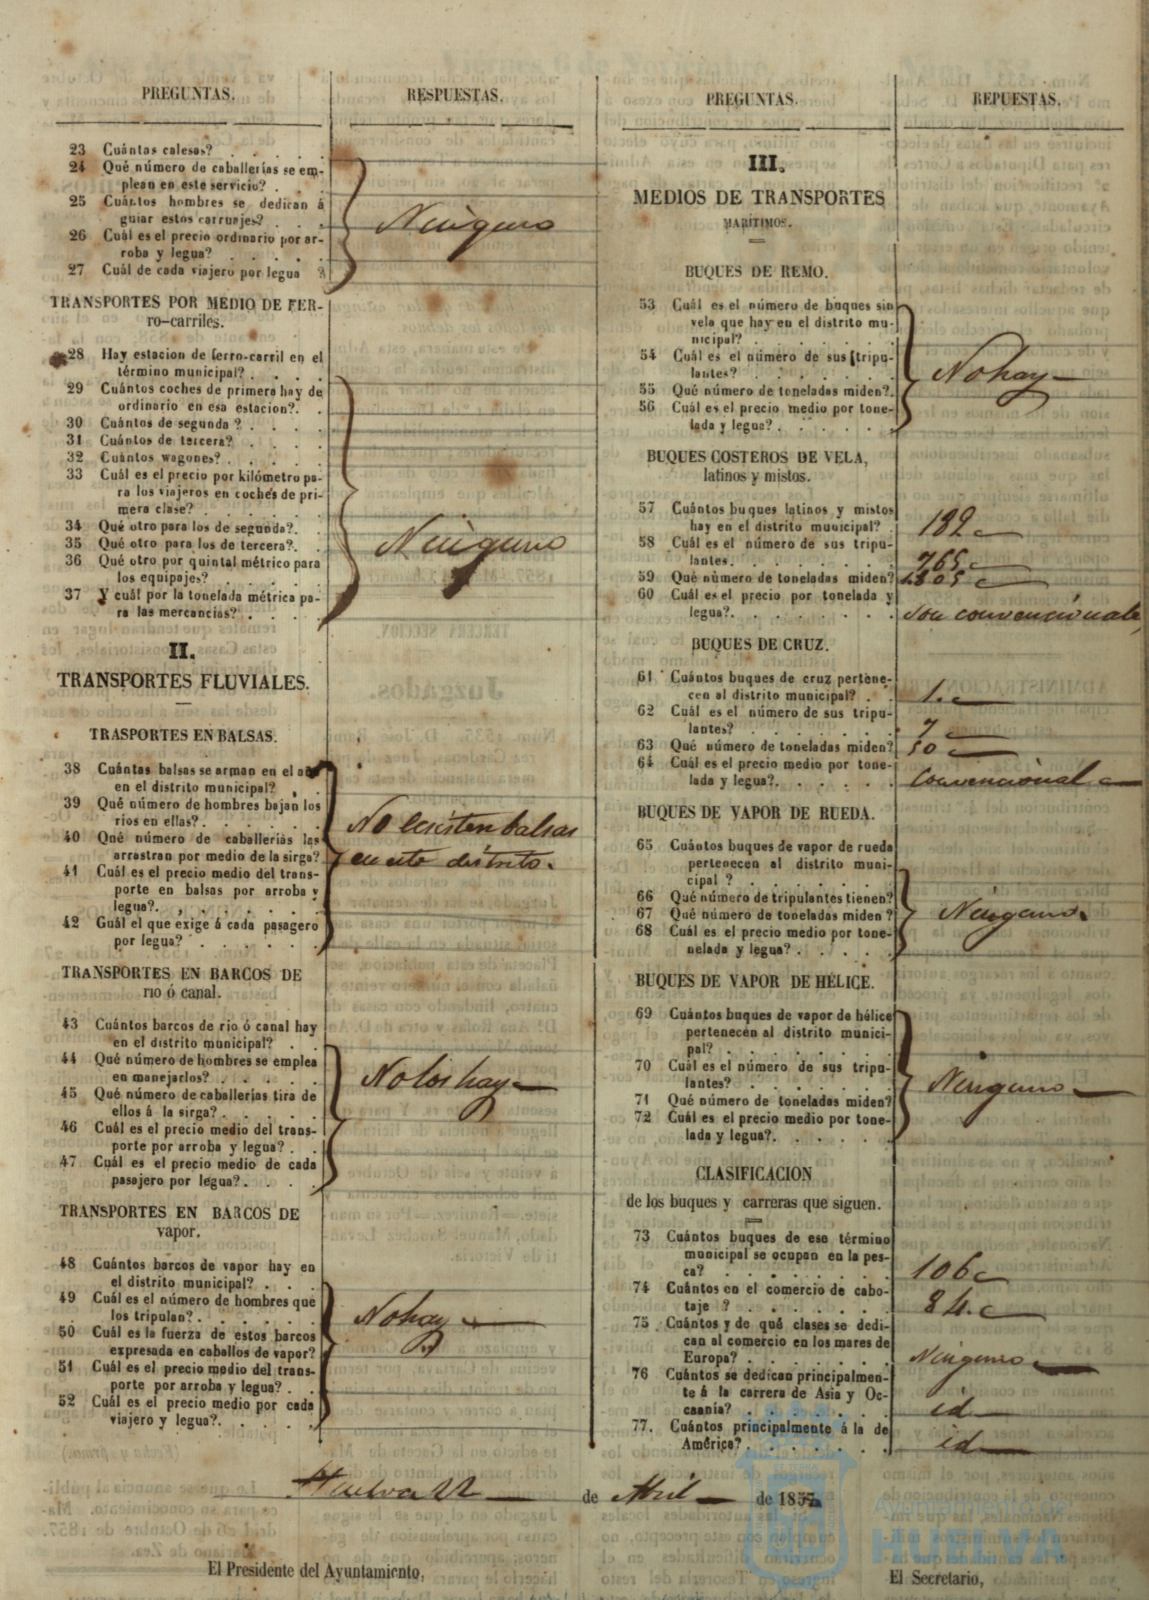 PREGUNTAS.
RESPUESTAS.
23 Cuántas calesas? . . . . .
24 Qué número de caballerías se em-
plean en este servicio? . . .
25 Cuántos hombres se dedican á
guiar estos carruajes? . . .
26 Cuál es el precio ordinario por ar-
roba y legua? . . . . .
27 Cuál de cada viajero por legua ?
Ninguno
TRANSPORTES POR MEDIO DE FER-
ro-carriles.
28 Hay estacion de ferro-carril en el
término municipal? . . . .
29 Cuántos coches de primera hay de
ordinario en esa estacion?. .
30 Cuántos de segunda ? . . . .
31 Cuántos de tercera? . . . .
32 Cuántos wagones? . . . . .
33 Cuál es el precio por kilómetro pa-
ra los viajeros en coches de pri-
mera clase? . . . . . .
34 Qué otro para los de segunda?. .
35 Qué otro para los de tercera?. .
36 Qué otro por quintal métrico para
los equipajes? . . . . .
37 Y cuál por la tonelada métrica pa-
ra las mercancías? . . . .
Ninguno
II.
TRANSPORTES FLUVIALES.
TRASPORTES EN BALSAS.
38 Cuántas balsas se arman en el año
en el distrito municipal? . .
39 Qué número de hombres bajan los
rios en ellas? . . . . . .
40 Qué número de caballerías las
arrastran por medio de la sirga?
41 Cuál es el precio medio del trans-
porte en balsas por arroba y
legua?. . . . . . .
42 Cuál el que exige á cada pasagero
por legua? . . . . . .
No ecsisten balsas
en este distrito.
TRANSPORTES EN BARCOS DE
rio ó canal.
43 Cuántos barcos de rio ó canal hay
en el distrito municipal? . .
44 Qué número de hombres se emplea
en manejarlos? . . . . .
45 Qué número de caballerías tira de
ellos á la sirga? . . . . .
46 Cuál es el precio medio del trans-
porte por arroba y legua? . .
47 Cuál es el precio medio de cada
pasajero por legua? . . . .
No los hay
TRANSPORTES EN BARCOS DE
vapor.
48 Cuántos barcos de vapor hay en
el distrito municipal? . . .
49 Cuál es el número de hombres que
los tripulan? . . . . . .
50 Cuál es la fuerza de estos barcos
expresada en caballos de vapor?
51 Cuál es el precio medio del trans-
porte por arroba y legua? . .
52 Cuál es el precio medio por cada
viajero y legua?. . . . .
No hay
PREGUNTAS.
REPUESTAS.
III.
MEDIOS DE TRANSPORTES
MARÍTIMOS.
BUQUES DE REMO.
53 Cuál es el número de buques sin
vela que hay en el distrito mu-
nicipal? . . . . . .
54 Cuál es el número de sus tripu-
lantes? . . . . . . .
55 Qué número de toneladas miden?.
56 Cuál es el precio medio por tone-
lada y legua? . . . . .
No hay
BUQUES COSTEROS DE VELA,
latinos y mistos.
57 Cuántos buques latinos y mistos
hay en el distrito municipal? .
192
58 Cuál es el número de sus tripu-
lantes. . . . . . . .
765
59 Qué número de toneladas miden?
60 Cuál es el precio por tonelada y
legua?. . . . . . . .
son convencionales
BUQUES DE CRUZ.
61 Cuántos buques de cruz pertene-
cen al distrito municipal? . .
1.
62 Cuál es el número de sus tripu-
lantes? . . . . . . .
7
63 Qué número de toneladas miden?
50
64 Cuál es el precio medio por tone-
lada y legua?. . . . . .
Convencional
BUQUES DE VAPOR DE RUEDA.
65 Cuántos buques de vapor de rueda
pertenecen al distrito muni-
cipal ? . . . . . . .
66 Qué número de tripulantes tienen?
67 Qué número de toneladas miden ?
68 Cuál es el precio medio por tone-
nelada y legua? . . . . .
Ninguno.
BUQUES DE VAPOR DE HÉLICE.
69 Cuántos buques de vapor de hélice
pertenecen al distrito munici-
pal? . . . . . . . .
70 Cuál es el número de sus tripu-
lantes? . . . . . . .
71 Qué número de toneladas miden?
72 Cuál es el precio medio por tone-
lada y legua?. . . . . .
Ninguno
CLASIFICACION
de los buques y carreras que siguen.
73 Cuántos buques de ese término
municipal se ocupan en la pes-
ca? . . . . . . . .
106
74 Cuántos en el comercio de cabo-
taje ? . . . . . . .
84.
75 Cuántos y de qué clases se dedi-
can al comercio en los mares de
Europa? . . . . . . .
Ninguno
76 Cuántos se dedican principalmen-
te á la carrera de Asia y Oc-
caanía? . . . . . . .
id
77. Cuántos principalmente á la de
América? . . . . . . .
id
Huelva 22 de Abril de 1857
El Presidente del Ayuntamiento,
El Secretario,
Ayuntamiento de
HUELVA